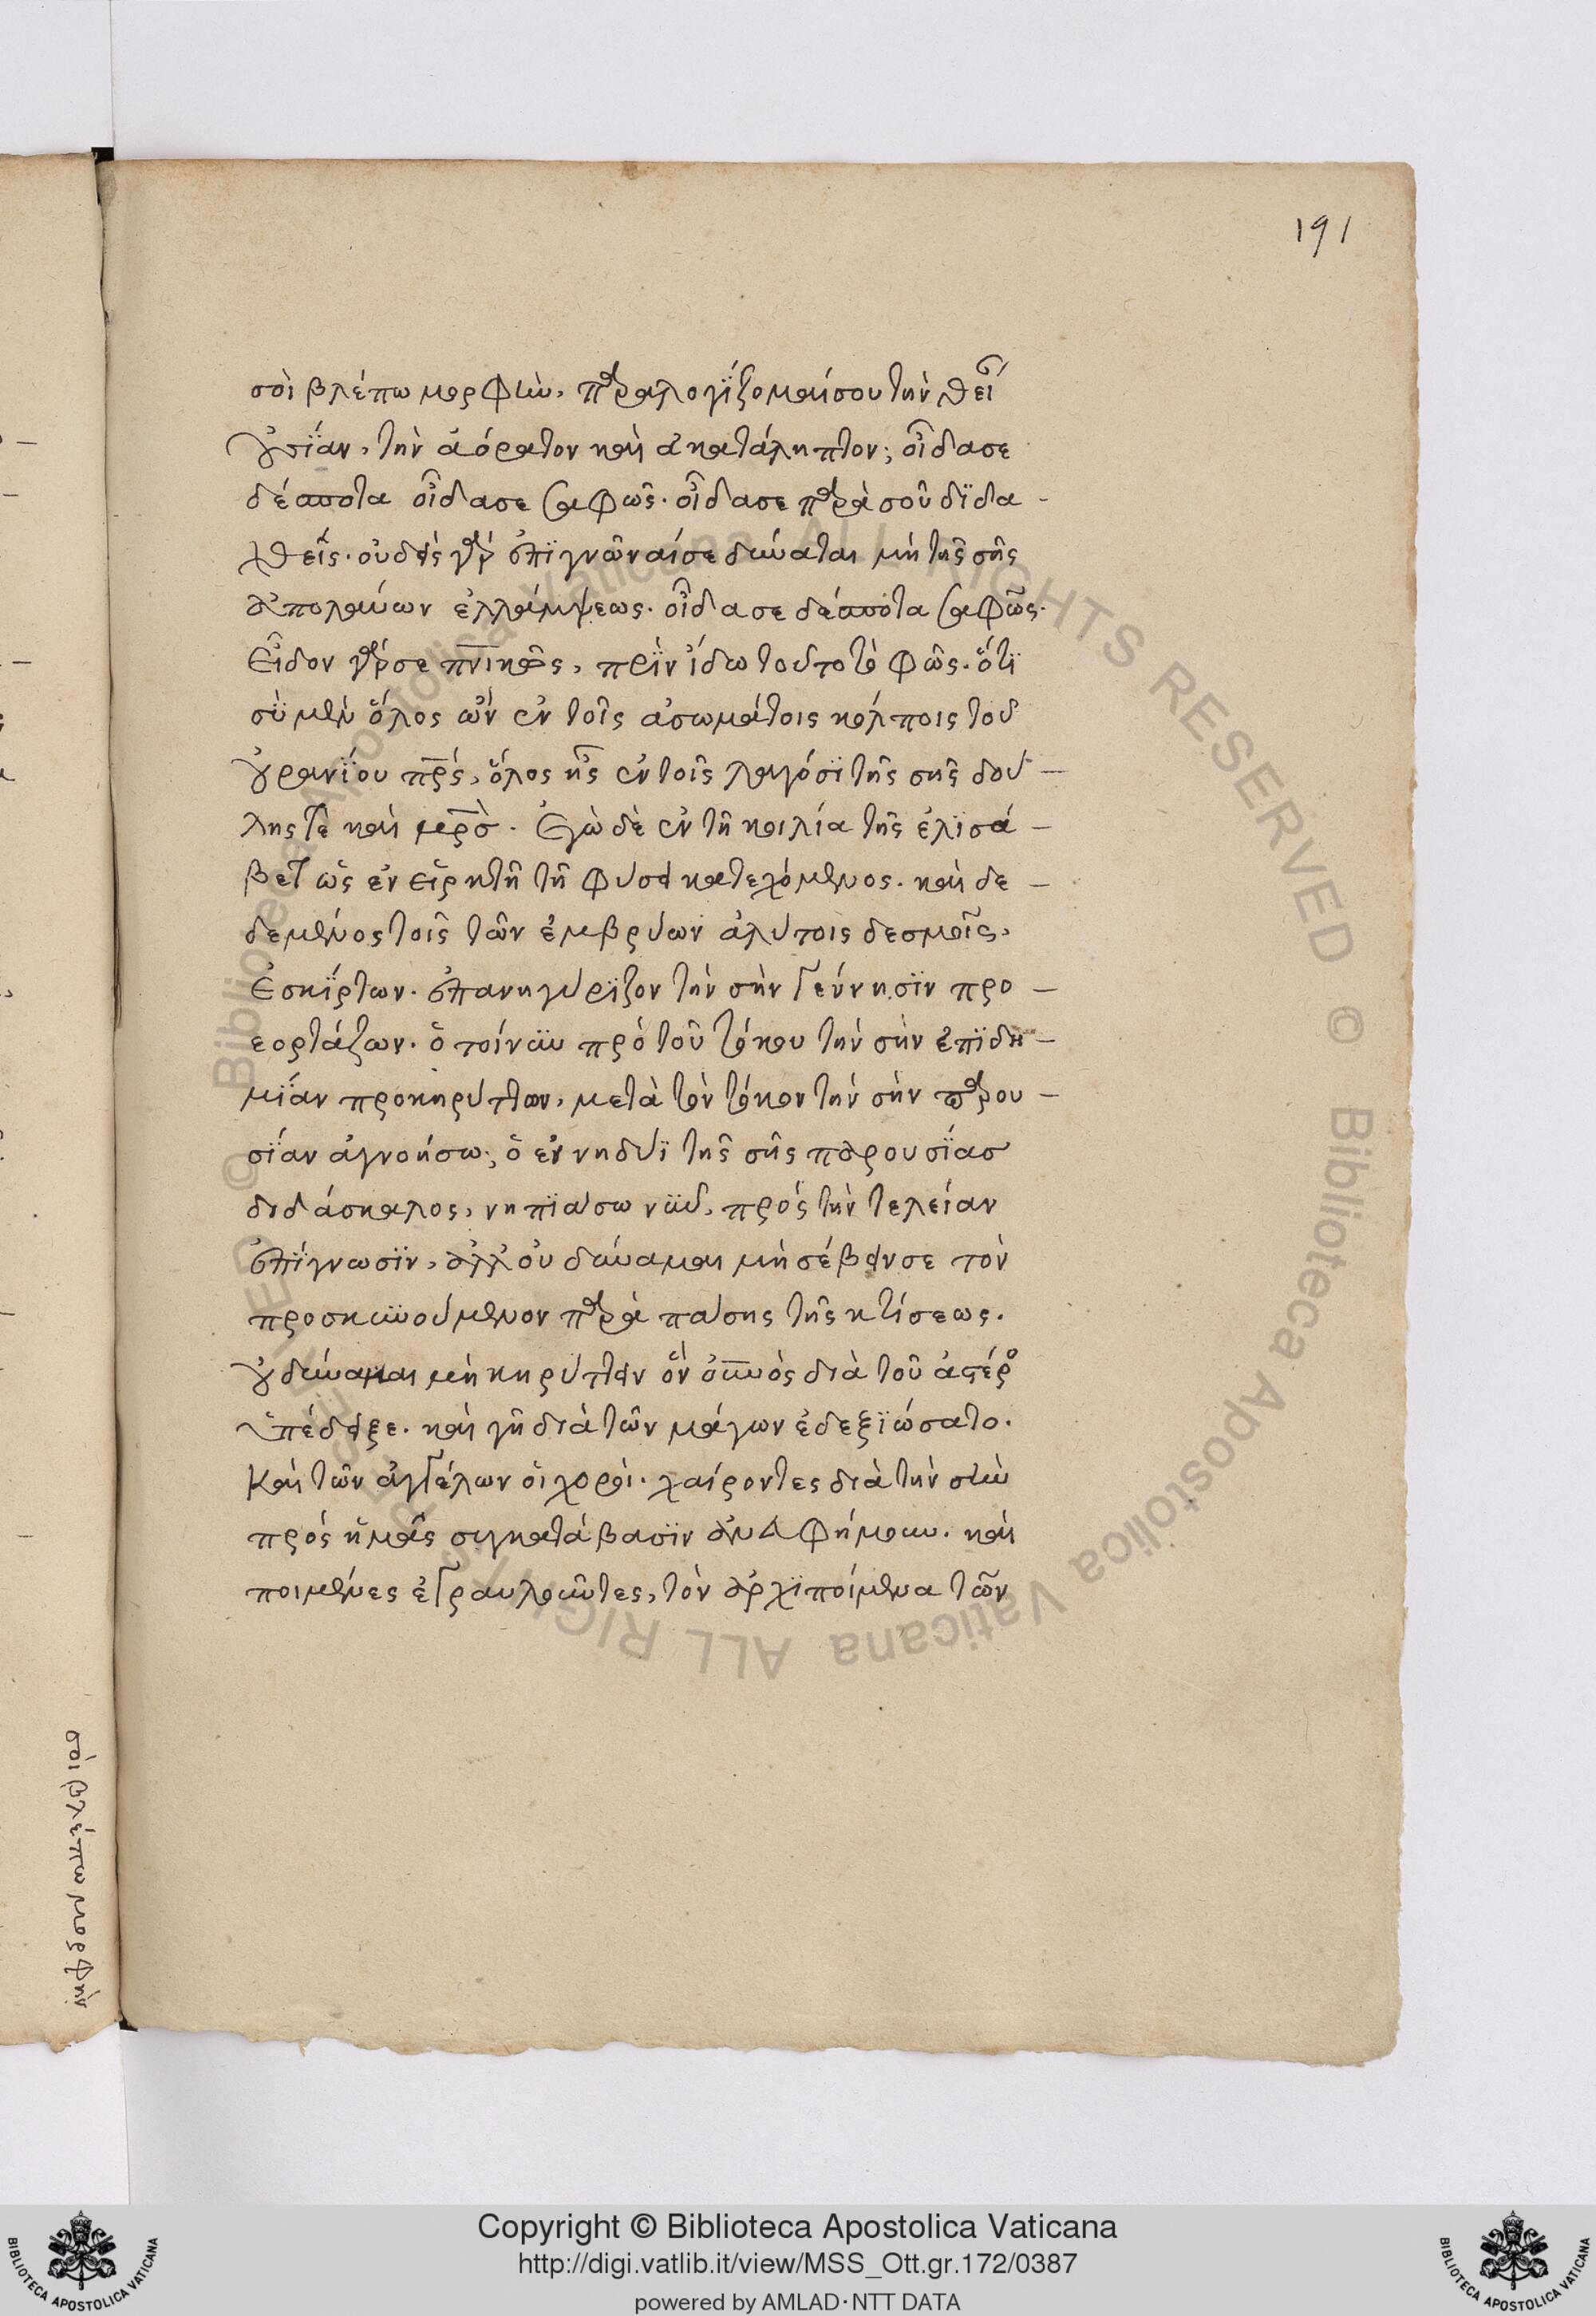 191
σοὶ βλέπω μορφὴν, παραλογίζομαί σου τὴν θεί
οὐσίαν, τὴν ἀόρατον καὶ ἀκατάληπτον; οἶδα σε
δέσποτα οἶδα σε σαφῶς. οἶδα σε παρὰ σοῦ διδα -
χθείς. οὐδεὶς γὰρ ἐπιγνῶναί σε δύναται μὴ τῆς σῆς
ἀπολαύων ἐλλάμψεως. οἶδα σε δέσποτα σαφῶς.
Εἶδον γάρ σε πνικῶς, πρὶν ἴδω τοῦτο τὸ φῶς. ὅτι
σὺ μὲν ὅλος ὢν ἐν τοῖς ἀσωμάτοις κόλποις τοῦ
οὐρανίου πρς, ὅλος ἦς ἐν τοῖς λαγόσι τῆς σῆς δού -
λης τὲ καὶ μρσ. Ἐγὼ δὲ ἐν τῇ κοιλία τῆς ἐλισά -
βετ ὡς ἐν εἱρκτῇ τῇ φύσει κατεχόμενος. καὶ δε -
δεμένος τοῖς τῶν ἐμβρύων ἀλύτοις δεσμοῖς,
Ἐσκίρτων. ἐπανηγύριζον τὴν σὴν γέννησιν προ -
εορτάζων. ὁ τοίνυν πρὸ τοῦ τόκου τὴν σὴν ἐπιδη -
μίαν προκηρύττων, μετὰ τὸν τόκον τὴν σὴν παρου -
σίαν ἀγνοήσω; ὁ ἐν νηδύϊ τῆς σῆς παρουσίας
διδάσκαλος, νηπιάσω νῦν, πρὸς τὴν τελείαν
ἐπίγνωσιν, ἀλλ' οὐ δύναμαι μὴ σέβειν σε τὸν
προσκυνούμενον παρὰ πάσης τῆς κτίσεως.
οὐ δύναμαι μὴ κηρύττειν ὃν ὁ οὐνὸς διὰ τοῦ ἀστέρος
ὑπέδειξε. καὶ γῆ διὰ τῶν μάγων ἐδεξιώσατο.
Καὶ τῶν ἀγγέλων οἱ χοροὶ. χαίροντες διὰ τὴν σὴν
πρὸς ἡμᾶς συγκατάβασιν ἀνευφήμουν. καὶ
ποιμένες ἀγραυλοῦντες, τὸν ἀρχιποίμενα τῶν
σοὶ βλέπω μορφήν
Copyright © Biblioteca Apostolica Vaticana
http://digi.vatlib.it/view/MSS_Ott.gr.172/0387
powered by AMLAD·NTT DATA
BIBLIOTECA APOSTOLICA VATICANA
BIBLIOTECA APOSTOLICA VATICANA